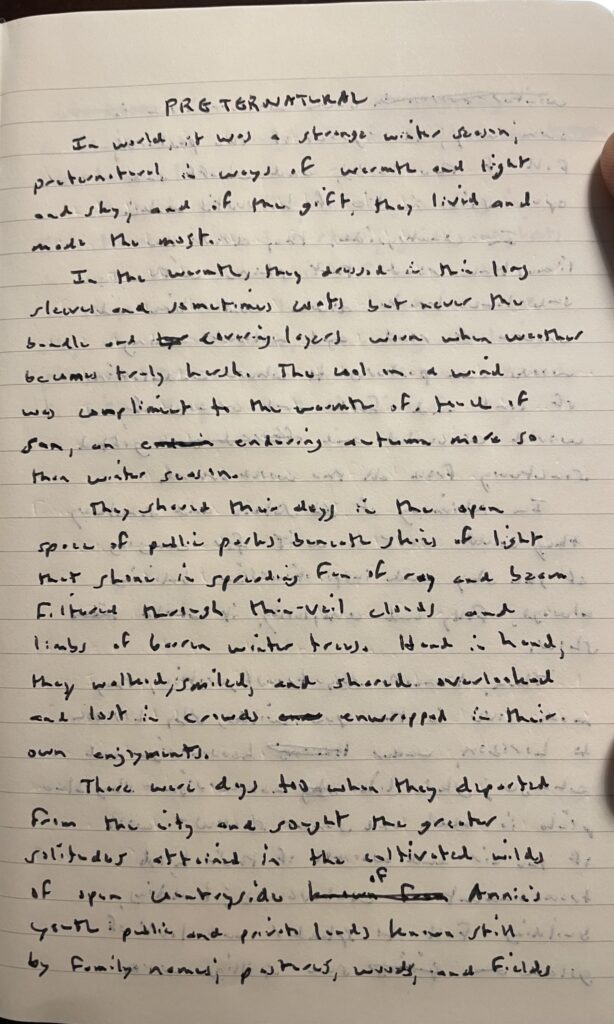 PRETERNATURAL
In world, it was a strange winter season,
preternatural in ways of warmth and light
and sky, and of the gift, they lived and
made the most.
In the warmth, they dressed in thin long
sleeves and sometimes coats but never the
bundle and covering layers worn when weather
becomes truly harsh. The cool on a wind
was compliment to the warmth of touch of
sun, an enduring autumn more so
than winter season.
They shared their days in the open
space of public parks beneath skies of light
that shone in spreading fan of ray and beam
filtered through thin-veil clouds and
limbs of barren winter trees. Hand in hand,
they walked, smiled, and shared overlooked
and lost in crowds enwrapped in their
own enjoyments.
There were days too when they departed
from the city and sought the greater
solitudes attained in the cultivated wilds
of open countryside of Annie's
youth public and private lands known still
by family names; pastures, woods, and fields